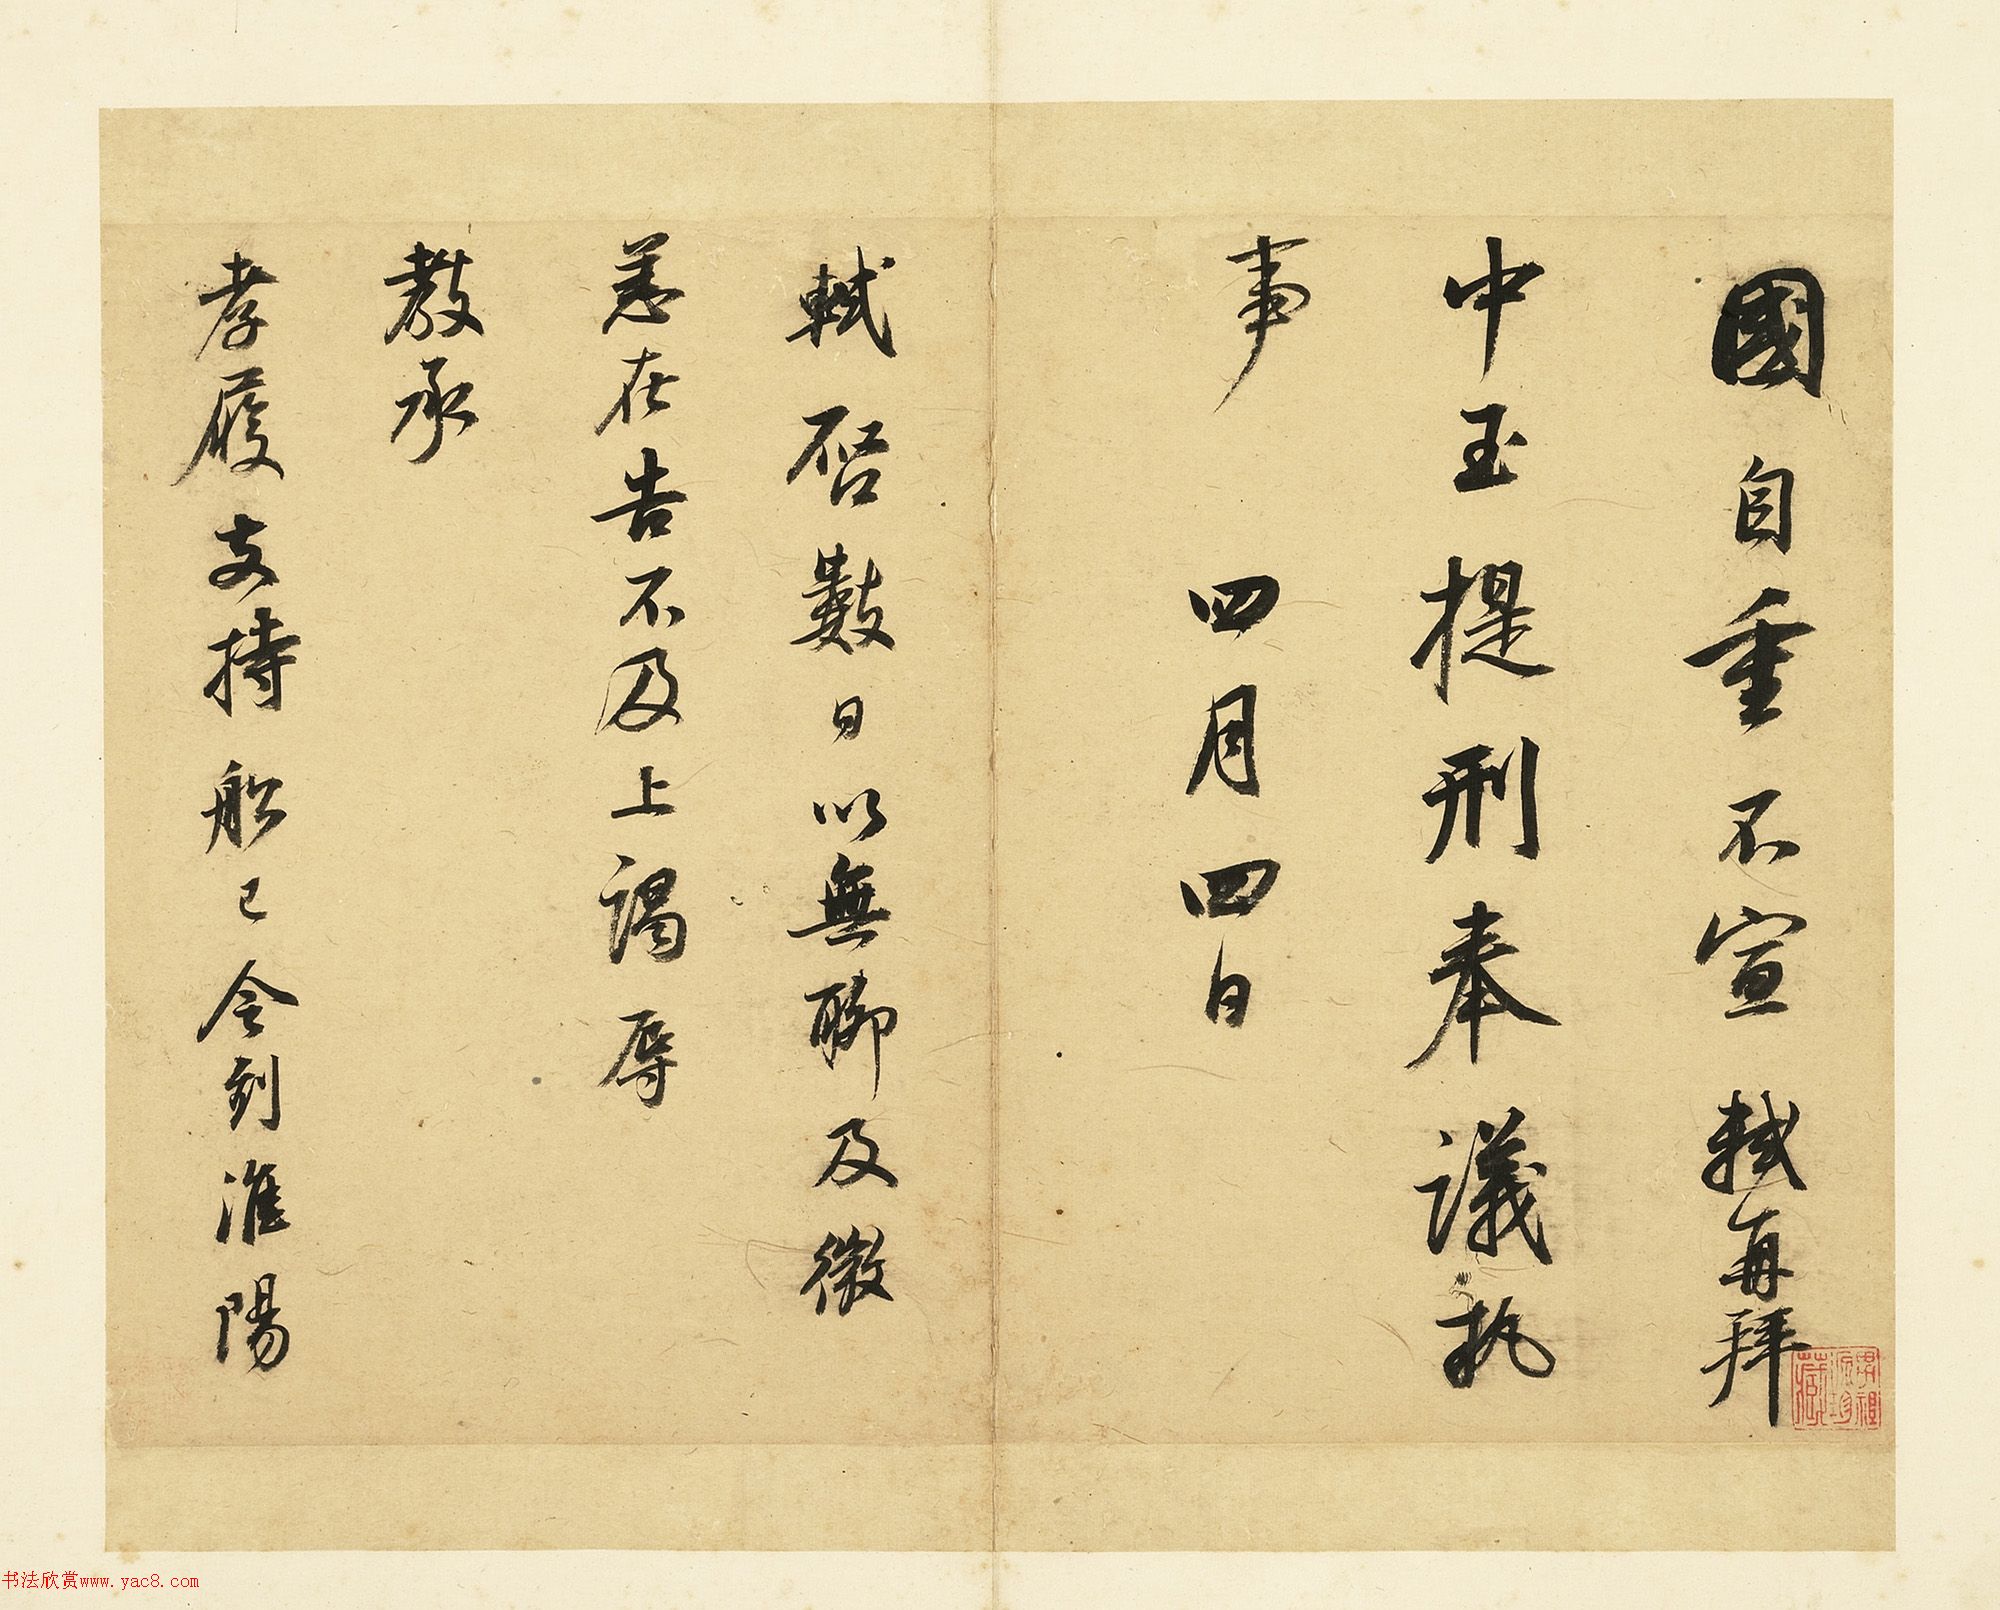 國自重不宣軾再拜
中玉提刑奉議執
事　四月四日
軾啓數日以無聊及微
恙在告不及上謁辱
教承
孝履支持船已令到淮陽
书法欣赏www.yac8.com